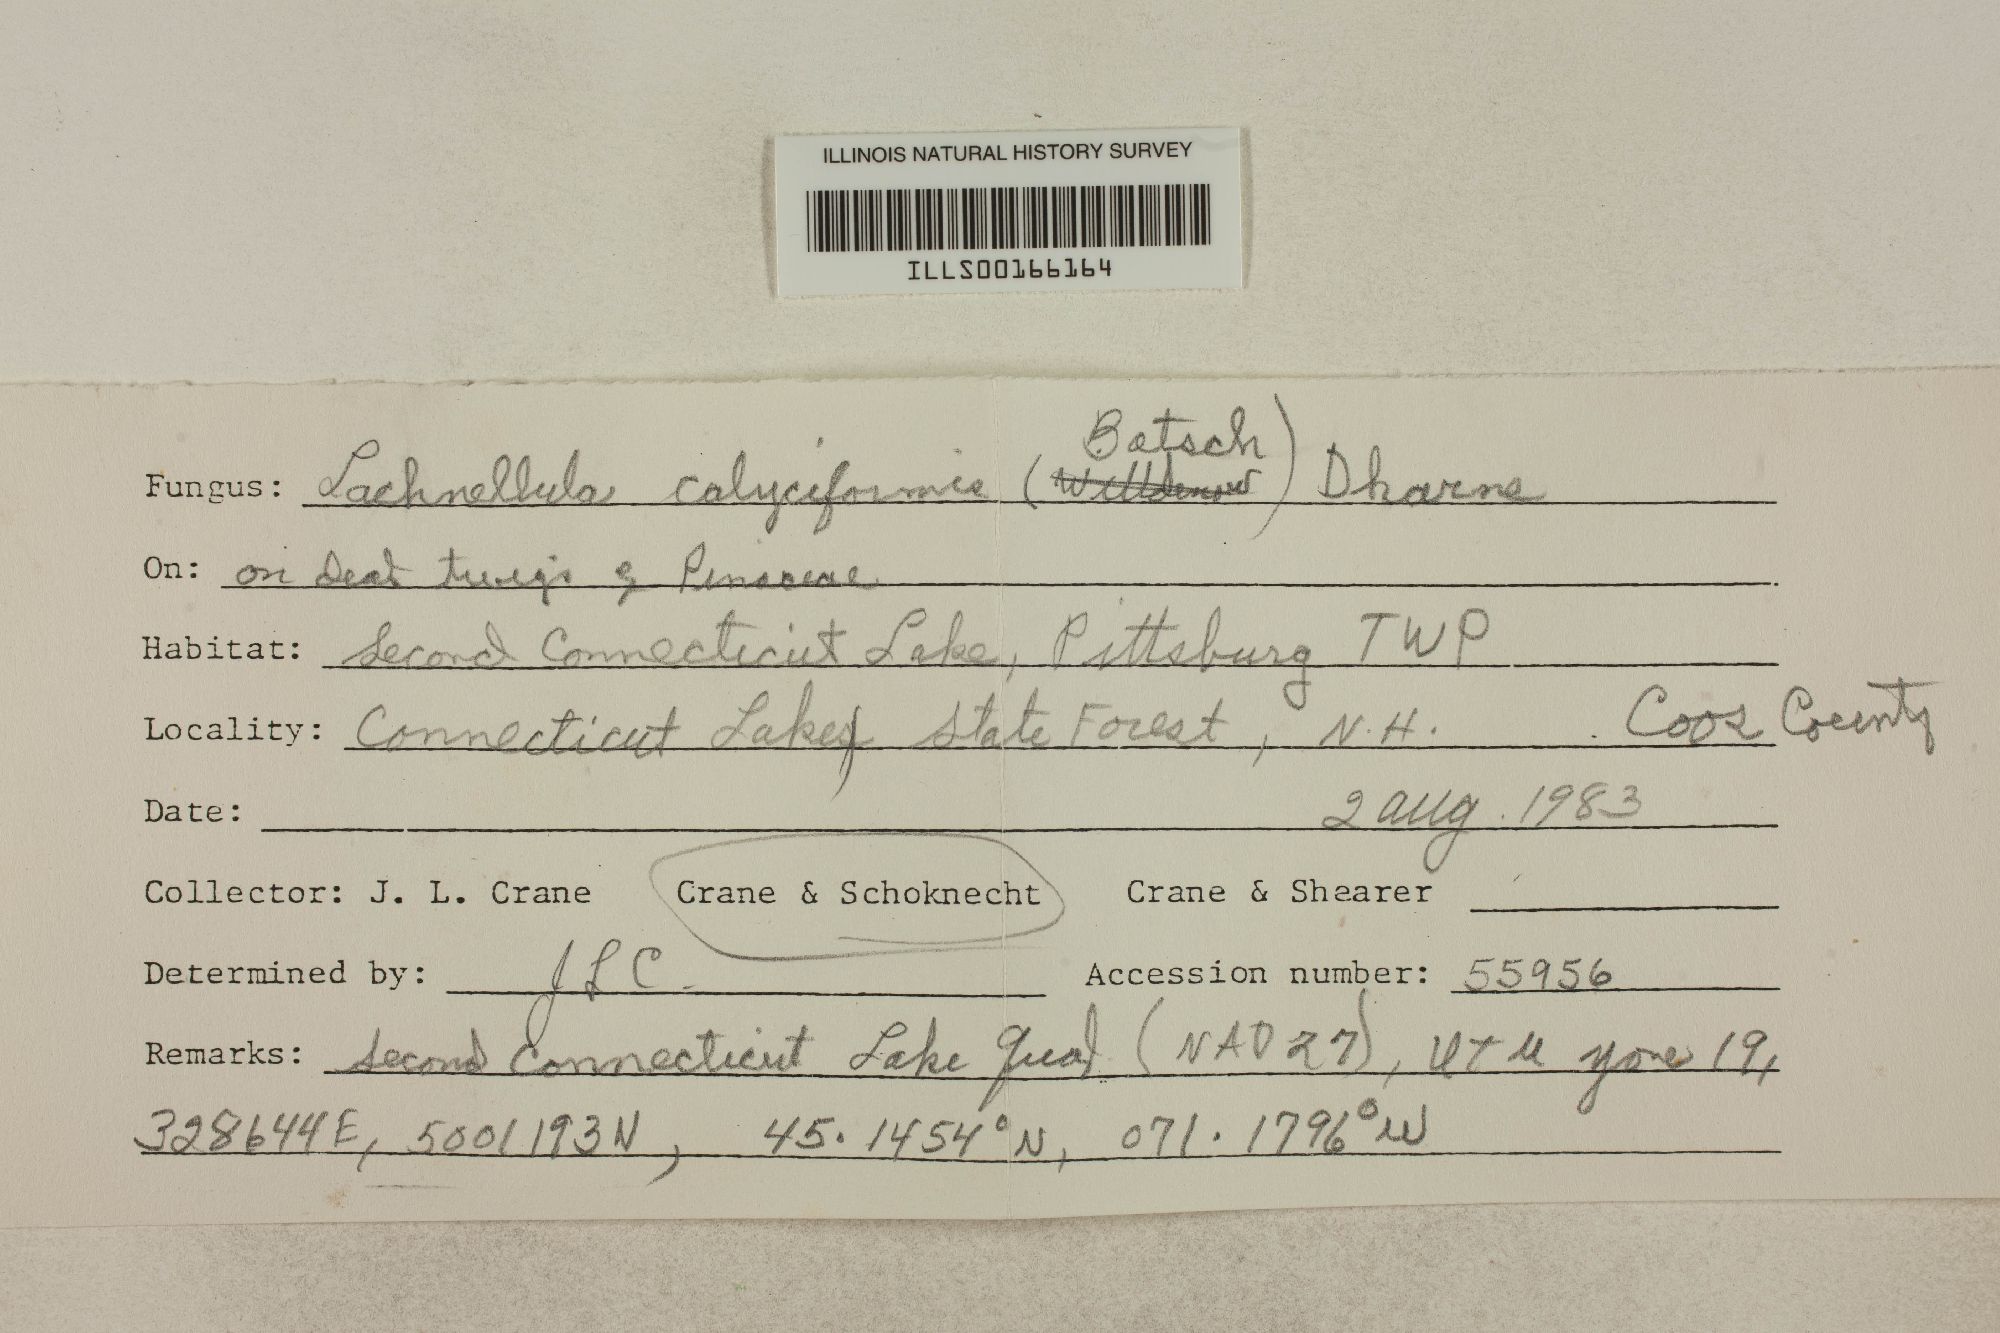 ILLINOIS NATURAL HISTORY SURVEY
ILLS00166164
Fungus: Lachnellula calyciformis (Willdenow Batsch) Dharne
On: on dead twigs of Pinaceae
Habitat: Second Connecticut Lake, Pittsburg TWP
Locality: Connecticut Lakes State Forest, N.H. Coos County
Date: 2 Aug. 1983
Collector: J. L. Crane Crane & Schoknecht Crane & Shearer
Determined by: JLC. Accession number: 55956
Remarks: Second Connecticut Lake Quad (NAD 27), UTM Zone 19,
328644E, 5001193N, 45.1454°N, 071.1796°W